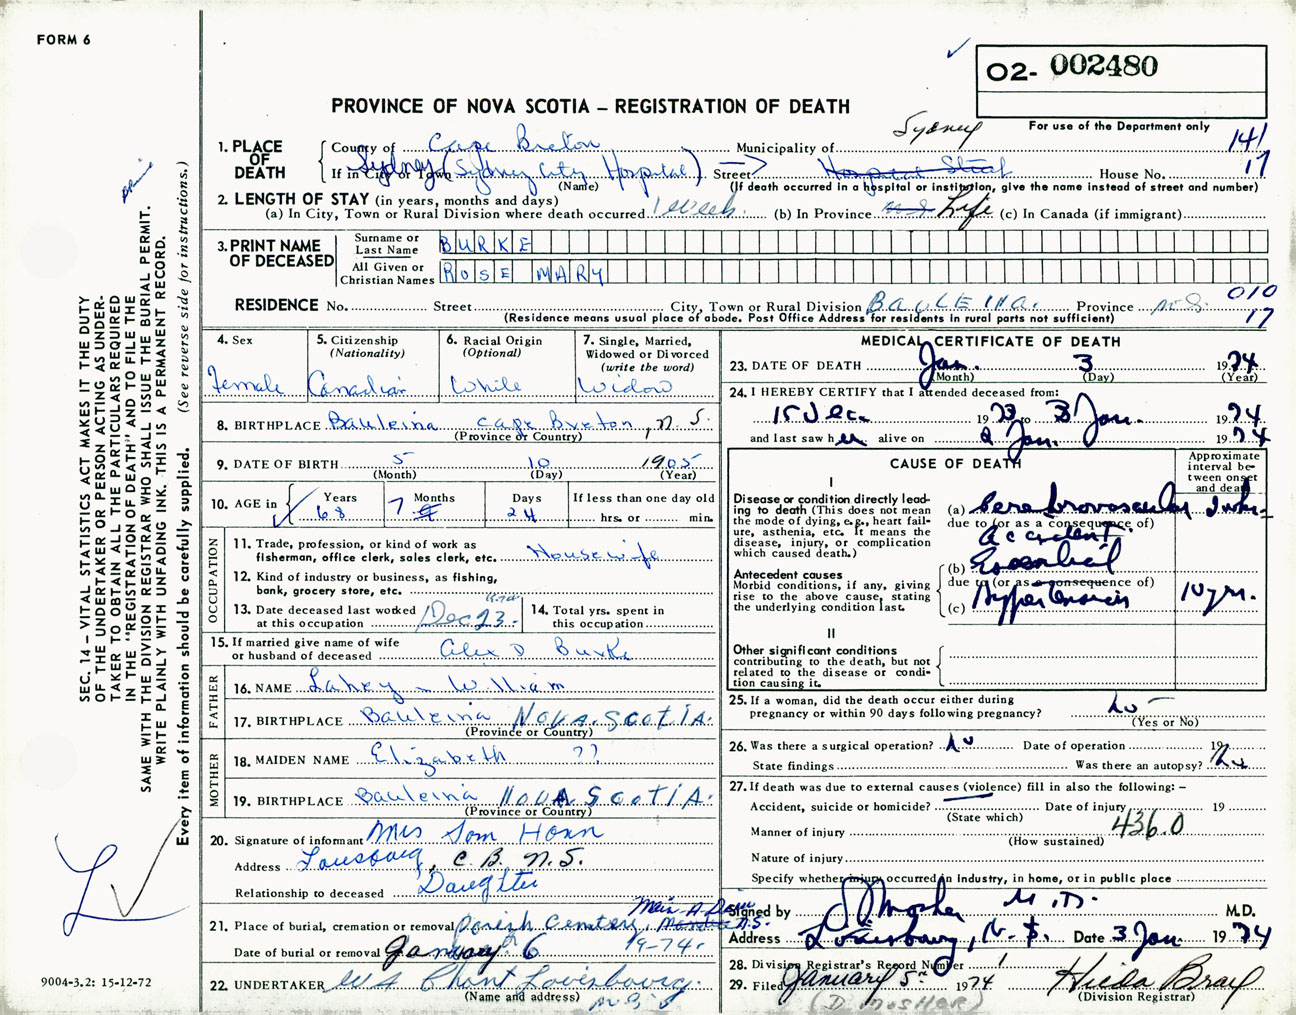 FORM 6
O2- 002480
PROVINCE OF NOVA SCOTIA – REGISTRATION OF DEATH
For use of the Department only
Sydney
141
17
1. PLACE OF DEATH
County of Cape Breton Municipality of
If in City or Town Sydney (Sydney City Hospital) Street Hospital Street House No.
(Name) (If death occurred in a hospital or institution, give the name instead of street and number)
2. LENGTH OF STAY (in years, months and days)
(a) In City, Town or Rural Division where death occurred 1 week. (b) In Province Life (c) In Canada (if immigrant)
3. PRINT NAME OF DECEASED
Surname or Last Name BURKE
All Given or Christian Names ROSE MARY
RESIDENCE No. Street City, Town or Rural Division Province N.S.
(Residence means usual place of abode. Post Office Address for residents in rural parts not sufficient)
010
17
4. Sex Female
5. Citizenship (Nationality) Canadian
6. Racial Origin (Optional) White
7. Single, Married, Widowed or Divorced (write the word) Widow
8. BIRTHPLACE Bauleina Cape Breton, N.S.
(Province or Country)
9. DATE OF BIRTH 5 10 1905
(Month) (Day) (Year)
10. AGE in Years 68 Months 7 Days 24 If less than one day old hrs. or min.
OCCUPATION
11. Trade, profession, or kind of work as fisherman, office clerk, sales clerk, etc. Housewife
12. Kind of industry or business, as fishing, bank, grocery store, etc.
13. Date deceased last worked at this occupation Dec 23.
14. Total yrs. spent in this occupation
15. If married give name of wife or husband of deceased Alex D Burke
FATHER
16. NAME Lahey – William
17. BIRTHPLACE Bauleina NOVA SCOTIA.
(Province or Country)
MOTHER
18. MAIDEN NAME Elizabeth ??
19. BIRTHPLACE Bauleina NOVA SCOTIA.
(Province or Country)
20. Signature of informant Mrs Tom Horn
Address Louisbourg, C.B. N.S.
Relationship to deceased Daughter
21. Place of burial, cremation or removal Parish Cemetery, Main-A-Dieu N.S.
Date of burial or removal January 6th 19-74.
22. UNDERTAKER Louisbourg. N.S.
(Name and address)
MEDICAL CERTIFICATE OF DEATH
23. DATE OF DEATH Jan. 3 1974
(Month) (Day) (Year)
24. I HEREBY CERTIFY that I attended deceased from:
15 Dec 1973 to 3 Jan. 1974
and last saw her alive on 2 Jan. 1974
CAUSE OF DEATH
Approximate interval between onset and death
I
Disease or condition directly leading to death (This does not mean the mode of dying, e.g., heart failure, asthenia, etc. It means the disease, injury, or complication which caused death.)
(a) Cerebrovascular
due to (or as a consequence of)
accident.
Antecedent causes
Morbid conditions, if any, giving rise to the above cause, stating the underlying condition last.
(b) Essential
due to (or as a consequence of)
(c) Hypertension 10 yrs.
II
Other significant conditions
contributing to the death, but not related to the disease or condition causing it.
25. If a woman, did the death occur either during pregnancy or within 90 days following pregnancy? no
(Yes or No)
26. Was there a surgical operation? No Date of operation 19
State findings Was there an autopsy? No
27. If death was due to external causes (violence) fill in also the following: –
Accident, suicide or homicide? Date of injury 19
(State which)
Manner of injury 436.0
(How sustained)
Nature of injury
Specify whether injury occurred in Industry, in home, or in public place
Signed by D Mosher M.D. M.D.
Address Louisbourg, N.S. Date 3 Jan. 1974
28. Division Registrar's Record Number 1
29. Filed January 5th 1974 Hilda Bray
(D. MOSHER) (Division Registrar)
9004-3.2: 15-12-72
SEC. 14 – VITAL STATISTICS ACT MAKES IT THE DUTY
OF THE UNDERTAKER OR PERSON ACTING AS UNDERTAKER
TO OBTAIN ALL THE PARTICULARS REQUIRED
IN THE "REGISTRATION OF DEATH" AND TO FILE THE
SAME WITH THE DIVISION REGISTRAR WHO SHALL ISSUE THE BURIAL PERMIT.
WRITE PLAINLY WITH UNFADING INK. THIS IS A PERMANENT RECORD.
Every item of information should be carefully supplied. (See reverse side for instructions.)